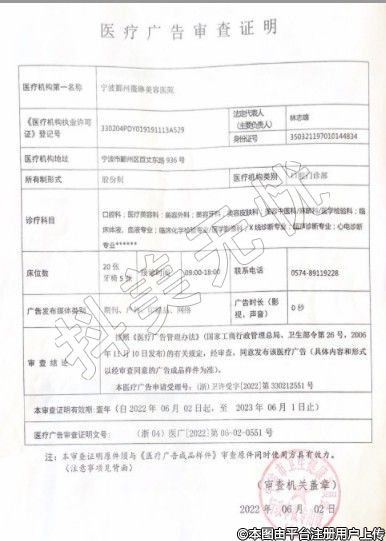 医疗广告审查证明
医疗机构第一名称 宁波鄞州薇琳美容医院
《医疗机构执业许可证》登记号 330204PDY019191113A529
法定代表人(主要负责人) 林志雄
身份证号 350321197010144834
医疗机构地址 宁波市鄞州区百丈东路936号
所有制形式 股份制 医疗机构类别 门诊部
诊疗科目
口腔科;医疗美容科;美容外科;美容牙科;美容皮肤科;美容中医科/麻醉科/医学检验科;临
床体液、血液专业;临床化学检验专业/医学影像科;X线诊断专业;超声诊断专业;心电诊断专
业******
床位数 20张 牙椅5张 接诊时间 09:00-18:00 联系电话 0574-89119228
广告发布媒体类别 期刊、户外、印刷品、网络 广告时长(影视、声音) 0秒
审查结论
按照《医疗广告管理办法》(国家工商行政管理总局、卫生部令第26号,2006
年11月10日发布)的有关规定,经审查,同意发布该医疗广告(具体内容和形式
以经审查同意的广告成品样件为准)。
本医疗广告申请受理号:(浙)卫许受字[2022]第330212551号
本审查证明有效期:壹年(自2022年06月02日起,至2023年06月1日止)
医疗广告审查证明文号:(浙04)医广[2022]第06-02-0551号
注:本审查证明原件须与《医疗广告成品样件》审查原件同时使用方具有效力。
(注意事项见背面)
(审查机关盖章)
2022年06月02日
抖美无忧
©本图由平台注册用户上传